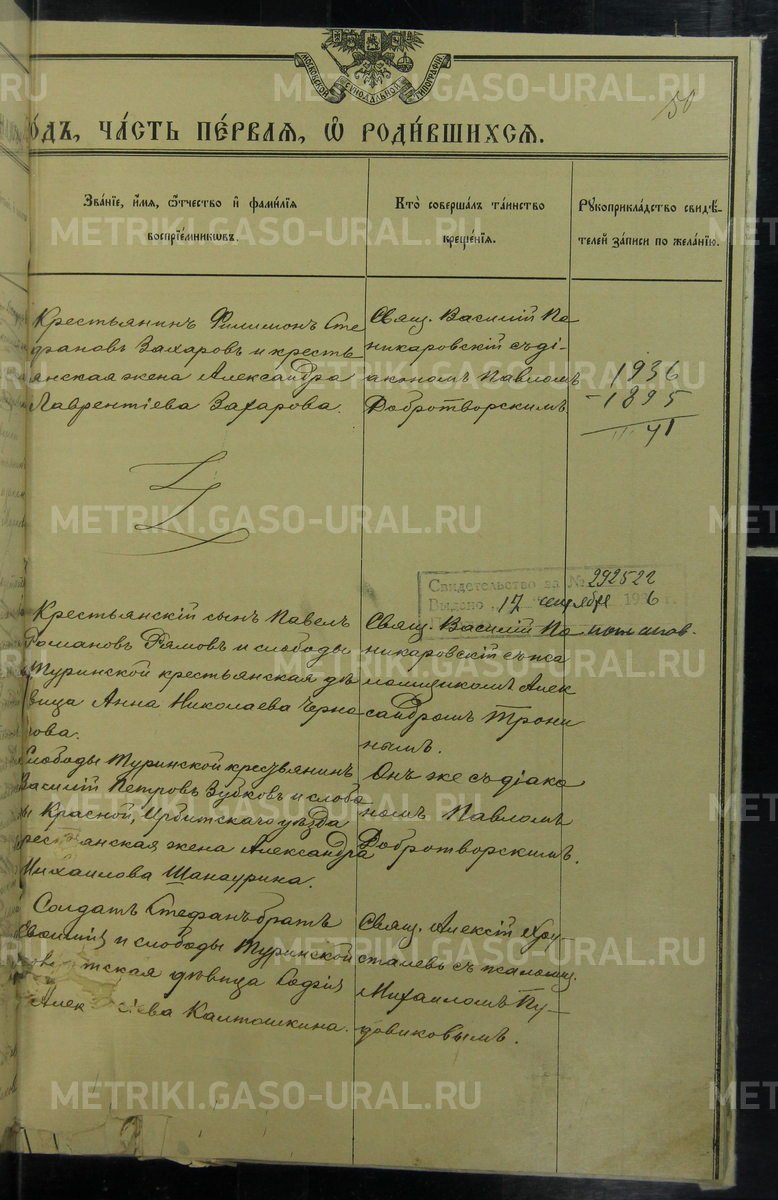 МОСКОВСКОЙ СѴНОДАЛЬНОЙ ТИПОГРАФІИ
50
ѻ́дъ, ча́сть пе́рваѧ, ѡ҆ роди́вшихсѧ.
Зва́нїе, и҆́мѧ, ѻ҆́тчество и҆ фами́лїѧ
воспрїе́мникѡвъ.
Кто̀ соверша́лъ та́инство
креще́нїѧ.
Рꙋкоприкла́дство свидѣ́-
телей за́писи по жела́нїю.
Крестьянинъ Филимонъ Сте
фановъ Захаровъ и кресть
янская жена Александра
Лаврентіева Захарова.
Свящ. Василій По
никаровскій съ ді-
акономъ Павломъ
Добротворскимъ
1936
-1895
41
Свидетельство за № 292522
Выдано 17 сентября 1936 г.
Крестьянскій сынъ Павелъ
Романовъ и слободы
Туринской крестьянская дѣ
вица Анна Николаева Черно
това.
Свящ. Василій По
никаровскій съ пса
ломщикомъ Алек
сандромъ Трони
нымъ.
Слободы Туринской крестьянинъ
Василій Петровъ Зубковъ и слобо
ды Красной, Ирбитскаго уѣзда
крестьянская жена Александра
Михаилова Шанаурина.
Онъ же съ діако
номъ Павломъ
Добротворскимъ.
Солдатъ Стефанъ братъ
и слободы Туринской
дѣвица Софія
Алексіева Калташкина.
Свящ. Алексій Хру
сталевъ съ псаломщ.
Михаиломъ Пу-
довиковымъ.
METRIKI.GASO-URAL.RU